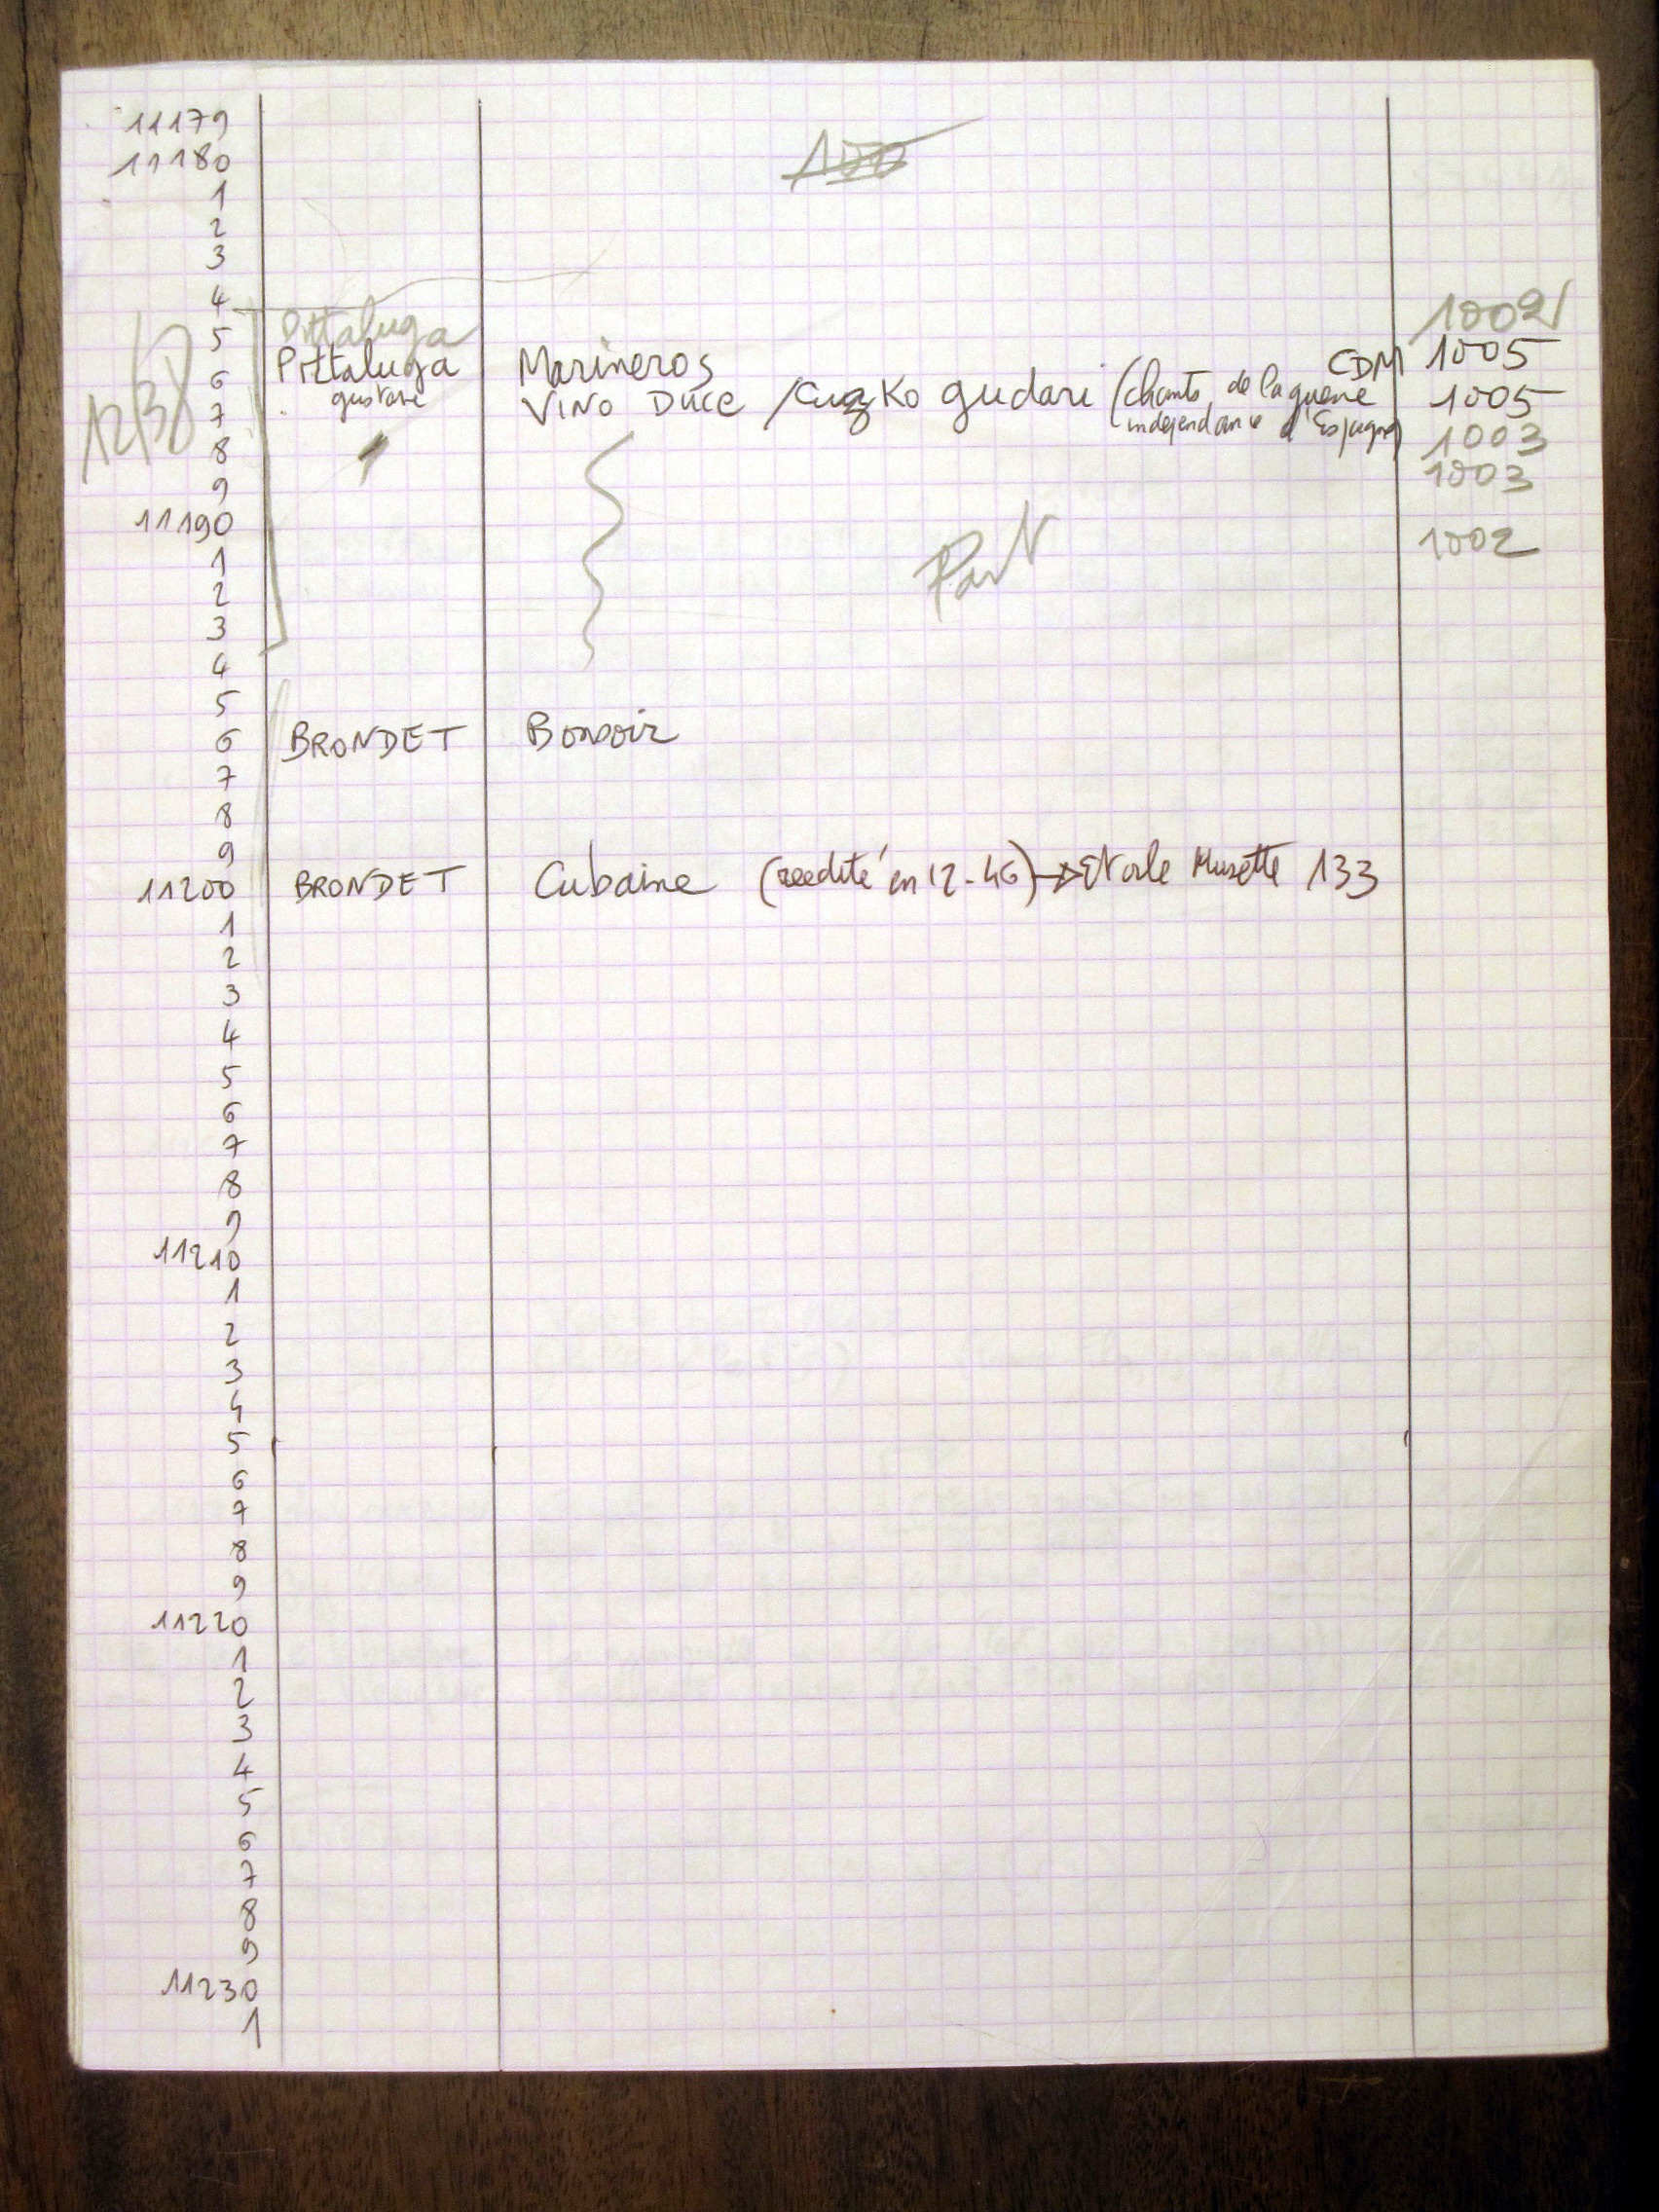 11179
11180
1
2
3
4 1002
5 Pittaluga
6 Pittaluga Marineros CDM 1005
gustave
7 Vino Duce / Cuzko gudari (chants de la guerre 1005
independance d'Espagne)
8 1003
9 1003
11190 1002
1
2
3
4
5
6 BRONDET Bonsoir
7
8
9
11200 BRONDET Cubaine (reedité en 12-46) → Etoile Musette 133
1
2
3
4
5
6
7
8
9
11210
1
2
3
4
5
6
7
8
9
11220
1
2
3
4
5
6
7
8
9
11230
1